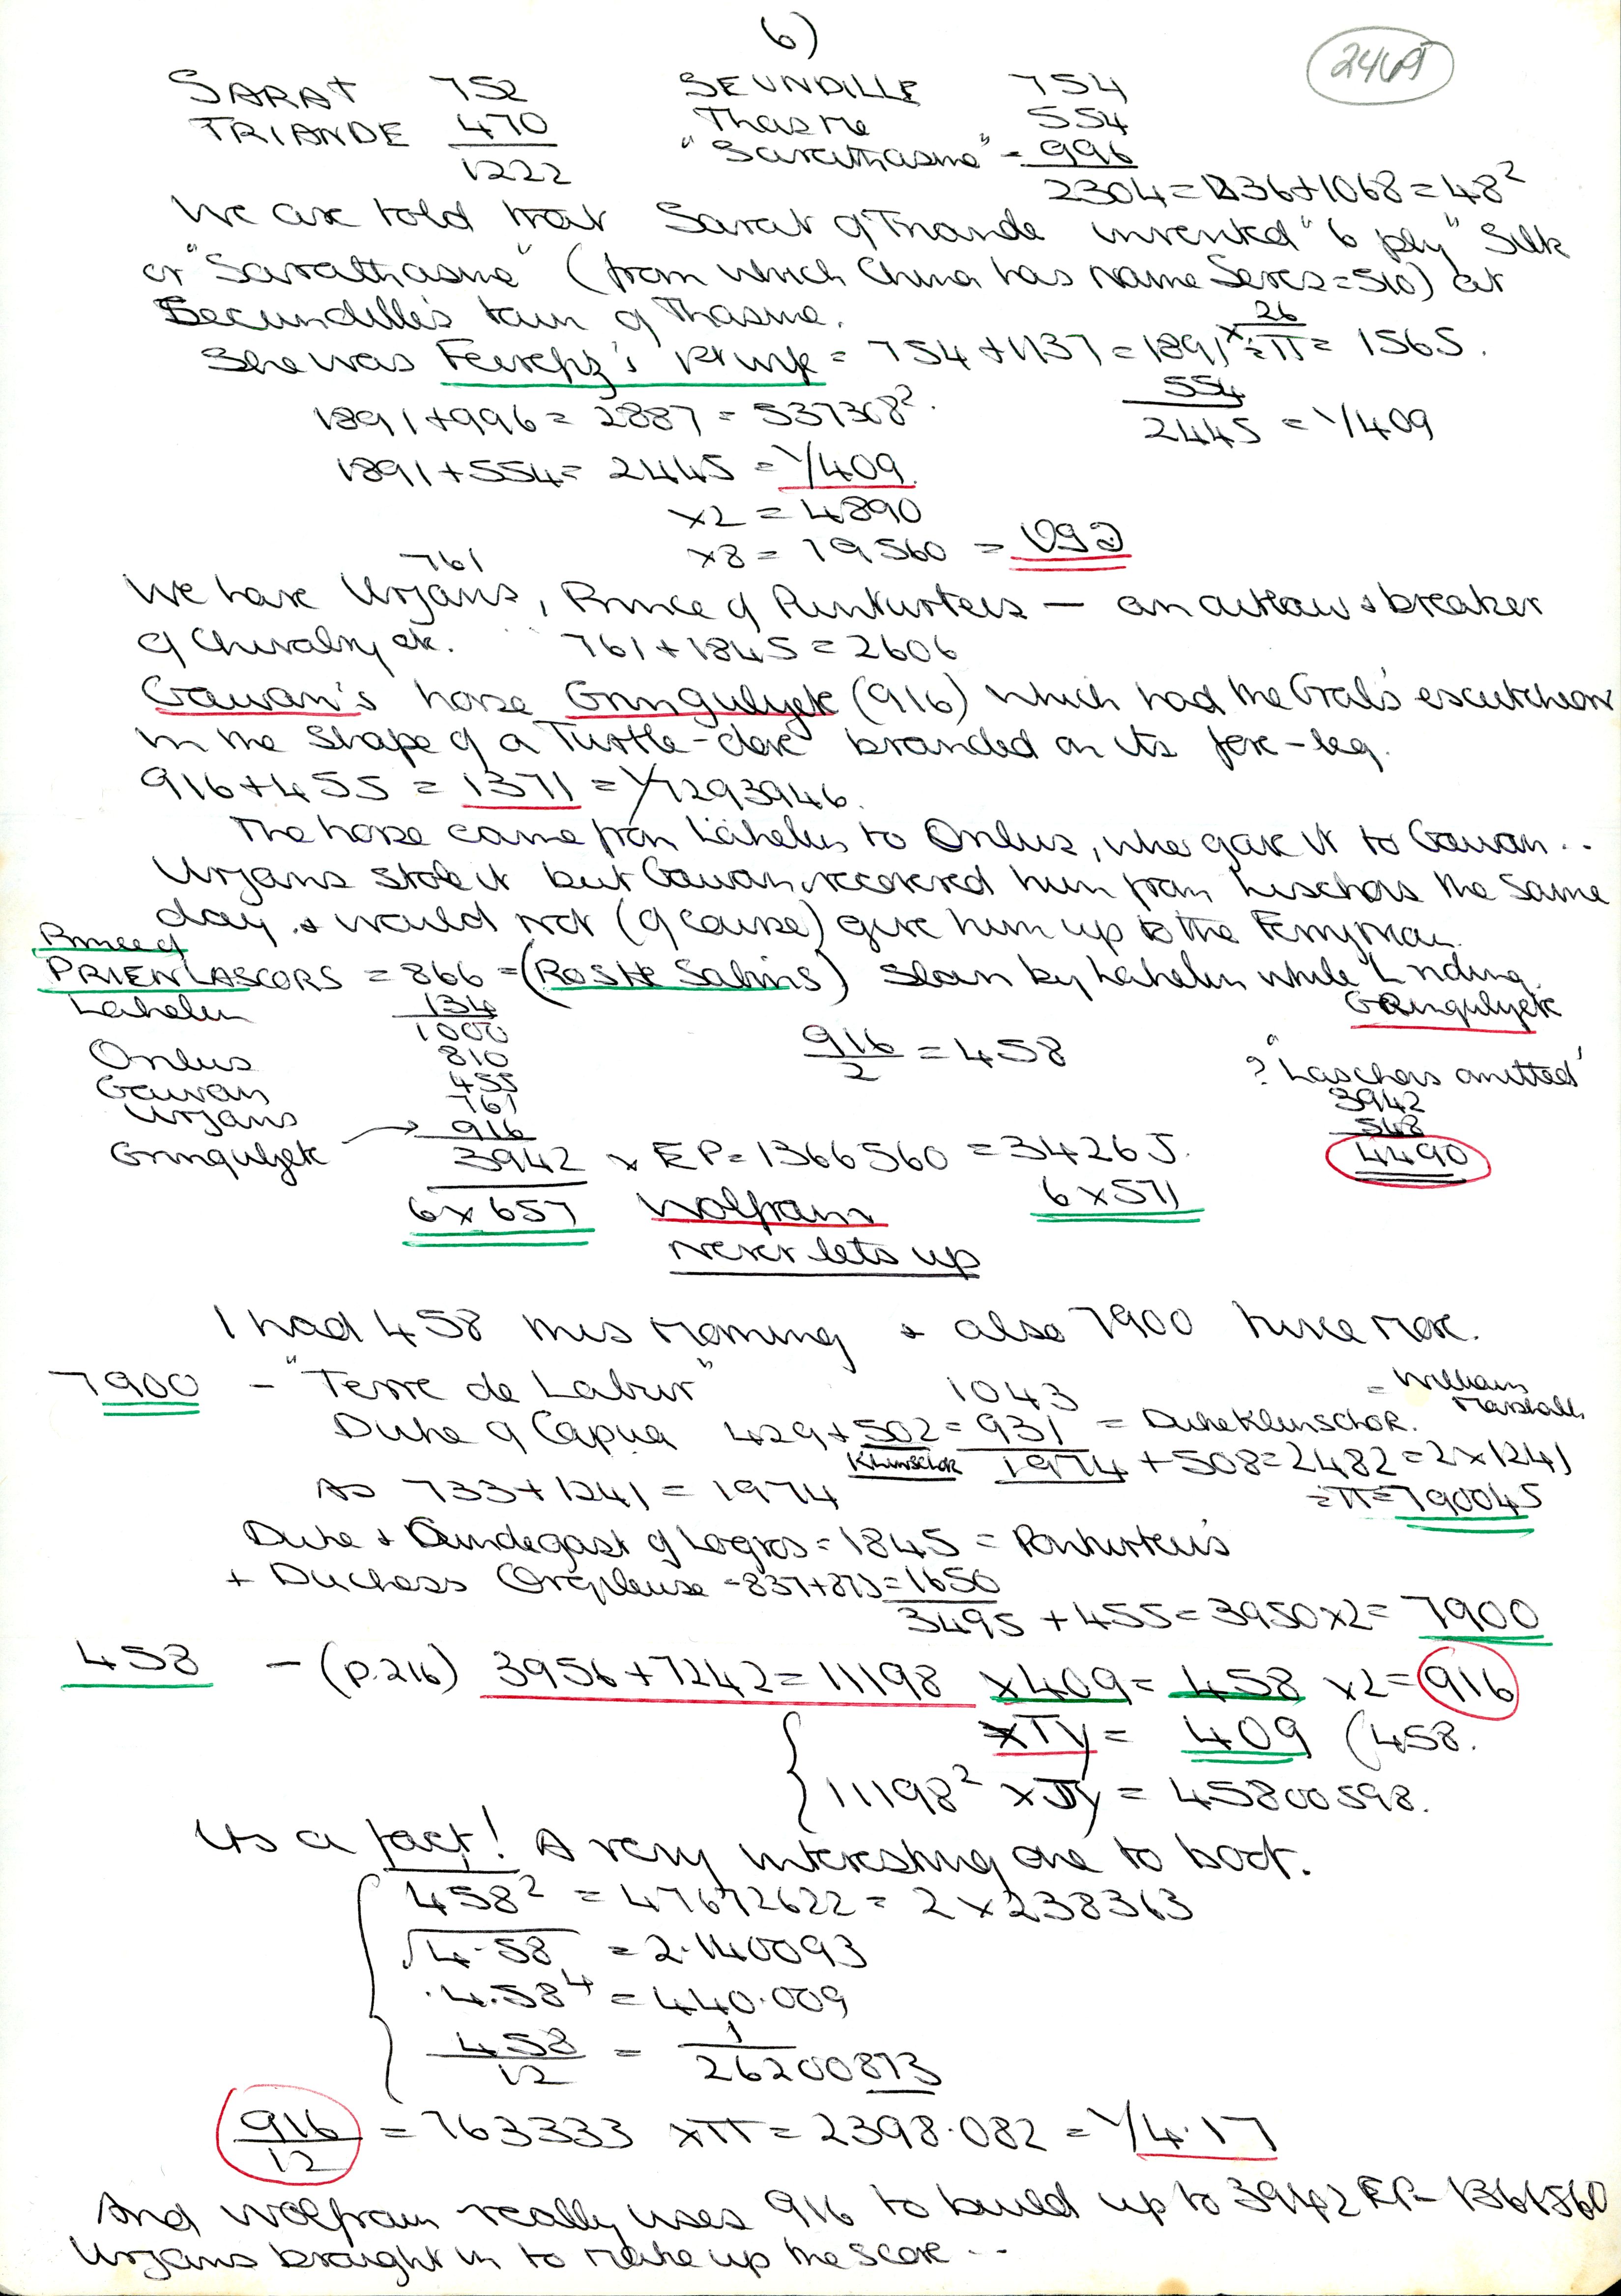 6)
2469
SARAT 752 SEUNDILLE 754
TRIANDE 470 Thasme 554
1222 "Sarathasme" = 996
2304 = 1236+1068 = 48²
We are told that Sarat of Triande invented "6 ply" Silk
or "Sarathasme" (from which China has name Seres = 510) at
Secundille's town of Thasme.
She was Feirefiz's = 754 + 1137 = 1891 x 26 ÷ π = 1565.
1891 + 996 = 2887 = 537308². 554
2445 = 1/409
1891 + 554 = 2445 = 1/409.
x2 = 4890
x8 = 19560 =
761
We have Urjans, Prince of Punturteis — an outlaw & breaker
of Chivalry etc. 761 + 1845 = 2606
Gawan's horse Gringuljete (916) which had the Gral's escutcheon
in the shape of a Turtle-dove branded on its fore-leg.
916 + 455 = 1371 = 1/7293946.
The horse came from Lähelin to Orilus, who gave it to Gawan..
Urjans stole it but Gawan recovered him from Lischois the same
day & would not (of course) give him up to the Ferryman.
Prince of
PRIENLASCORS = 866 = (Roshe Sabins) Slain by Lahelin while L riding
Gringuljete
Lahelin 134
1000
Orilus 810 916/2 = 458
Gawan 455 ? "Laschors omitted"
Urjans 761 3942
Gringuljete → 916 548
3942 x EP = 1366560 = 34265. 4490
6 x 657 Wolfram 6 x 571
never lets up
I had 458 this morning & also 7900 twice more.
7900 – "Terre de Labur" 1043 = William Marshall
Duke of Capua 429 + 502 = 931 = Duke Klinschor.
Klinschor 1974 + 508 = 2482 = 2 x 1241
As 733 + 1241 = 1974 ÷ π = 790045
Duke & Bundegast of Logrois = 1845 = Punturteis
+ Duchess Orgeluse = 837 + 813 = 1650
3495 + 455 = 3950 x 2 = 7900
458 – (p.216) 3956 + 7242 = 11198 x 409 = 458 x 2 = 916
x πy = 409 (458.
11198² x πy = 45800598.
Its a fact! A very interesting one to boot.
458² = 47672622 = 2 x 238363
√4.58 = 2.140093
.4.58⁴ = 440.009
458/12 = 1/26200873
916/12 = 763333 x π = 2398.082 = 1/4.17
And Wolfram really uses 916 to build up to 3942 EP = 1366560
Urjans brought in to make up the score ...